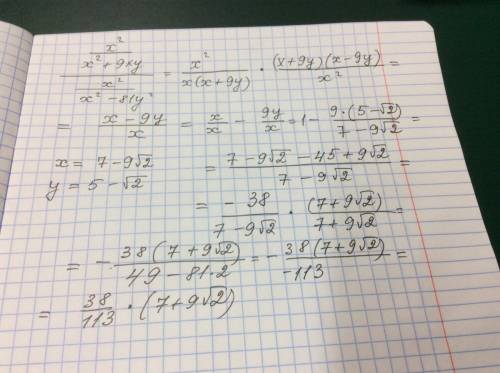 (x²/(x²+9xy))/(x²/(x²-81y²)) = x²/(x(x+9y)) · ((x+9y)(x-9y))/x² =
= (x-9y)/x = x/x - 9y/x = 1 - (9·(5-√2))/(7-9√2) =
x = 7-9√2
y = 5-√2
= (7-9√2-45+9√2)/(7-9√2) =
= (-38)/(7-9√2) · (7+9√2)/(7+9√2) =
= - (38(7+9√2))/(49-81·2) = - (38(7+9√2))/(-113) =
= 38/113 · (7+9√2)